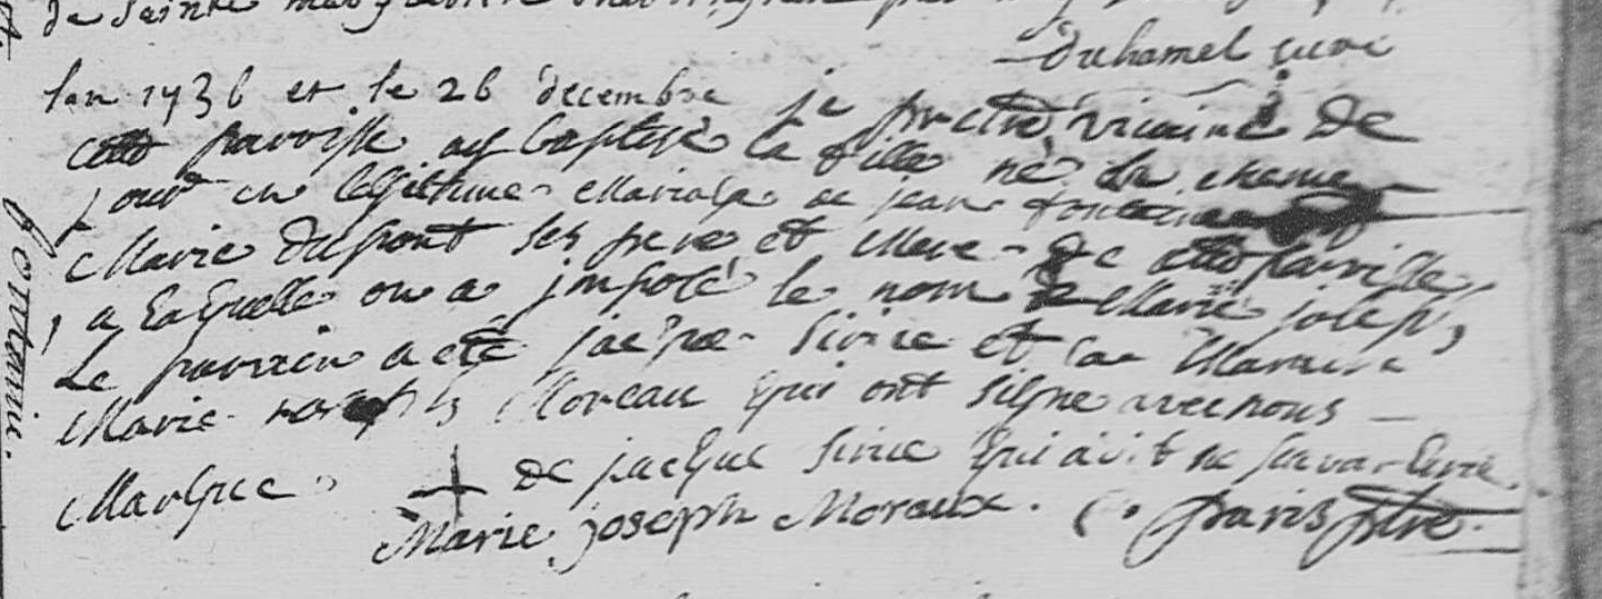 de Sainte
Duhamel cure
lan 1736 et le 26 decembre je pretre vicaire de
cette parroisse ay baptisé la fille né le meme
jour en legithime mariage de jean fontaine
Marie dupont ses pere et mere de cette parroisse,
a laquelle on a imposé le nom de Marie joseph,
Le parrein a eté jacque Sirice et la Maraine
Marie joseph Moreau qui ont signe avec nous
Marque + de jacque Sirice qui a dit ne scavoir ecrire.
Marie joseph Moraux. paris ptre.